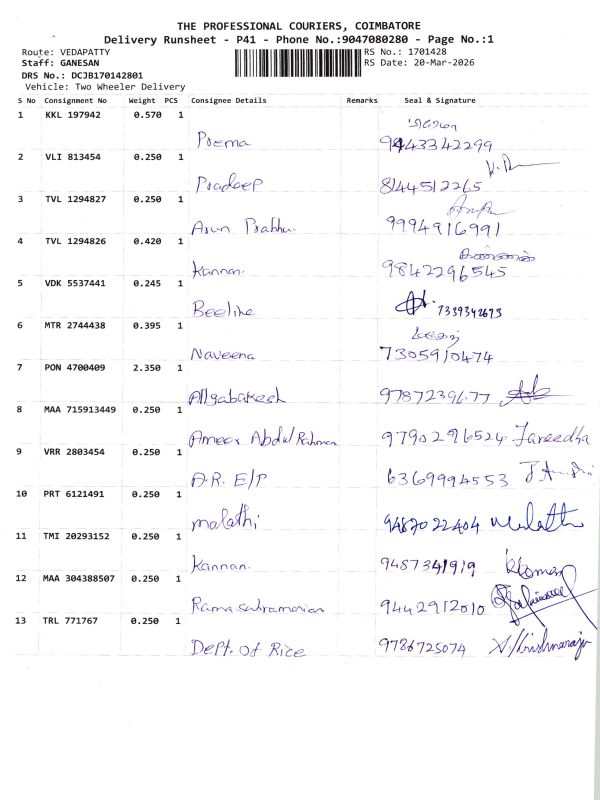 THE PROFESSIONAL COURIERS, COIMBATORE
Delivery Runsheet - P41 - Phone No.:9047080280 - Page No.:1
Route: VEDAPATTY RS No.: 1701428
Staff: GANESAN RS Date: 20-Mar-2026
DRS No.: DCJB170142801
Vehicle: Two Wheeler Delivery
S No Consignment No Weight PCS Consignee Details Remarks Seal & Signature
1 KKL 197942 0.570 1
Prema 9443342299
2 VLI 813454 0.250 1
Pradeep 8144512265
3 TVL 1294827 0.250 1
Arun Prabhu. 9994916991
4 TVL 1294826 0.420 1
Kannan. 9842296545
5 VDK 5537441 0.245 1
Beeline 7339342673
6 MTR 2744438 0.395 1
Naveena 7305910474
7 PON 4700409 2.350 1
Allgabakesh 9787239677
8 MAA 715913449 0.250 1
Ameer Abdul Rahman 9790296524 Fareedha
9 VRR 2803454 0.250 1
A.R. E/P 6369994553
10 PRT 6121491 0.250 1
malathi 9487022404 Malathi
11 TMI 20293152 0.250 1
Kannan. 9487341919
12 MAA 304388507 0.250 1
Ramasubramanian 9442912010
13 TRL 771767 0.250 1
Dept. of Rice 9786725074 A. Krishnaraju